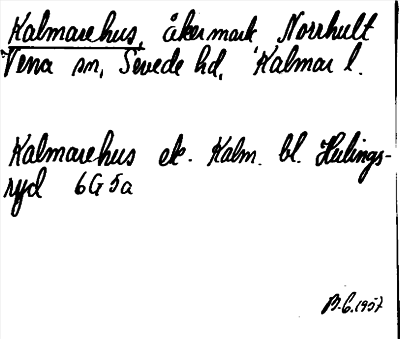 Kalmarehus, åkermark Norrhult
Vena sn, Sevede hd, Kalmar l.
Kalmarehus ek. Kalm. bl. Hulings-
ryd 6G5a
1957